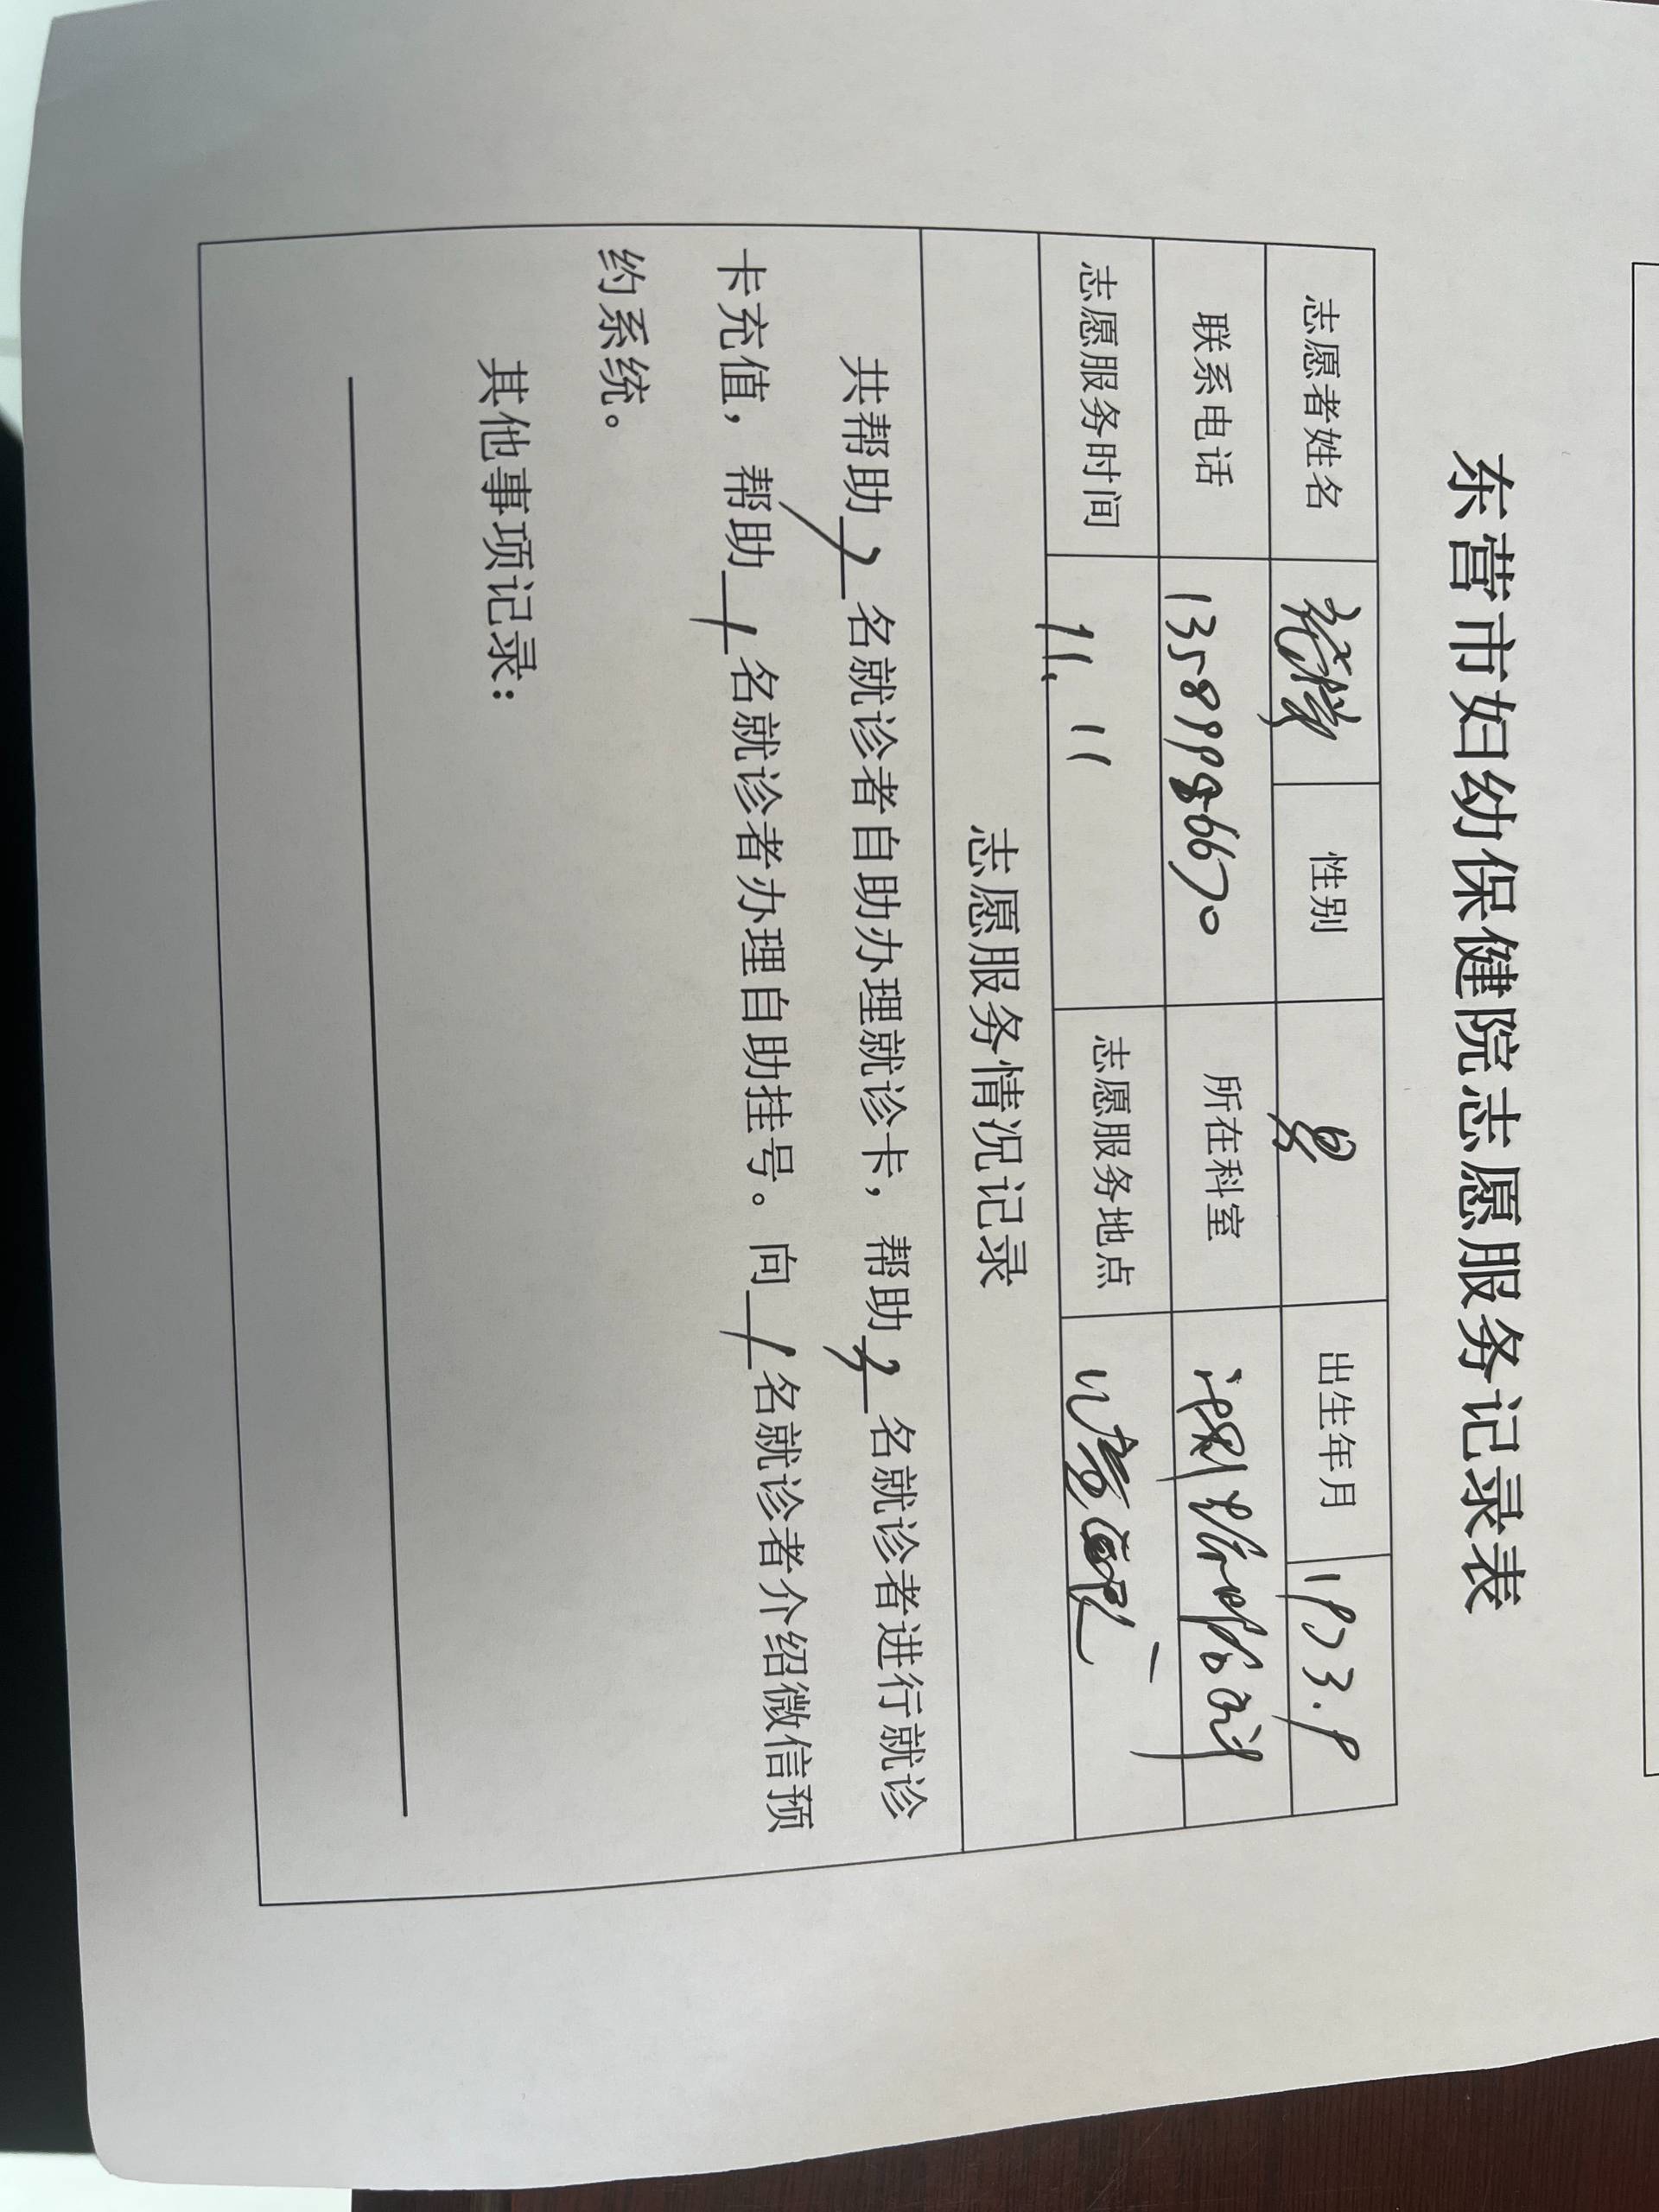 东营市妇幼保健院志愿服务记录表
志愿者姓名 性别 男 出生年月 1973.9
联系电话 13589998670 所在科室
志愿服务时间 11.11 志愿服务地点
志愿服务情况记录
共帮助 7 名就诊者自助办理就诊卡，帮助 3 名就诊者进行就诊
卡充值，帮助 1 名就诊者办理自助挂号。向 1 名就诊者介绍微信预
约系统。
其他事项记录：